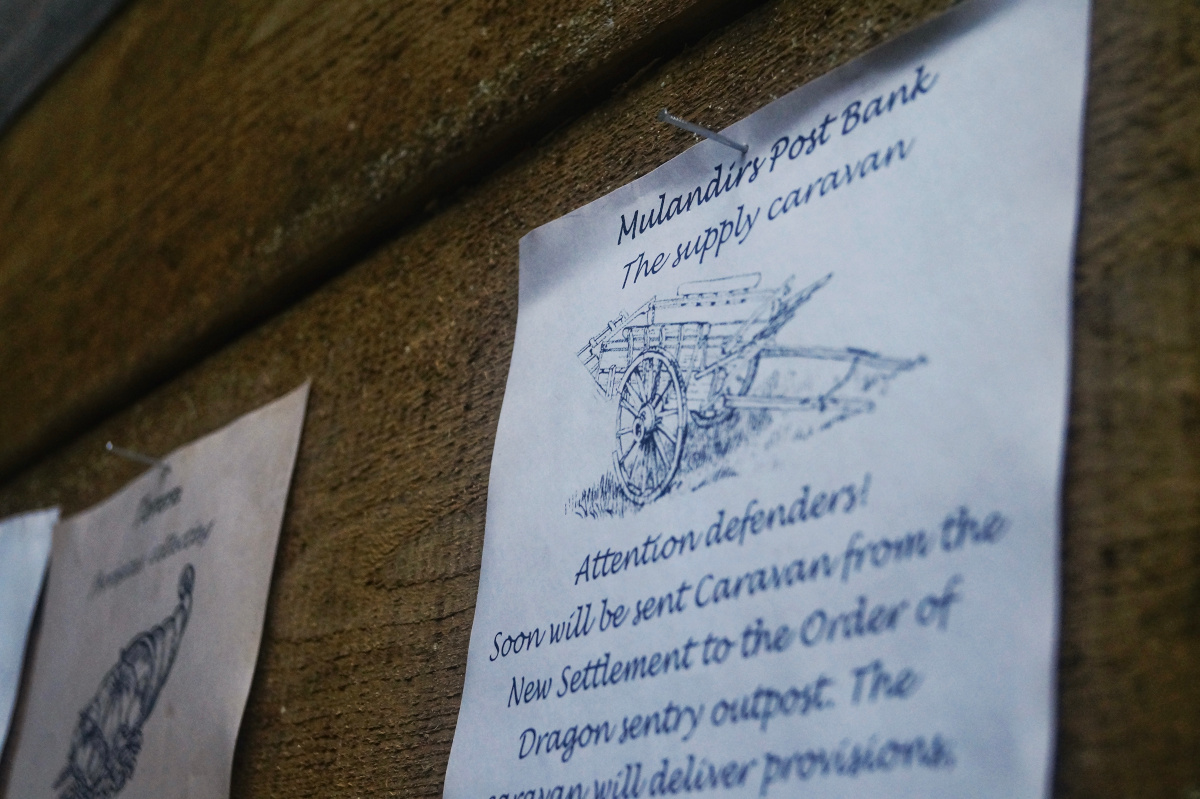 Mulandirs Post Bank
The supply caravan
Attention defenders!
Soon will be sent Caravan from the
New Settlement to the Order of
Dragon sentry outpost. The
caravan will deliver provisions,